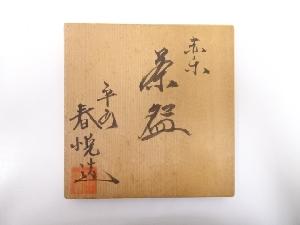 赤楽
茶盌
平安
春悦造